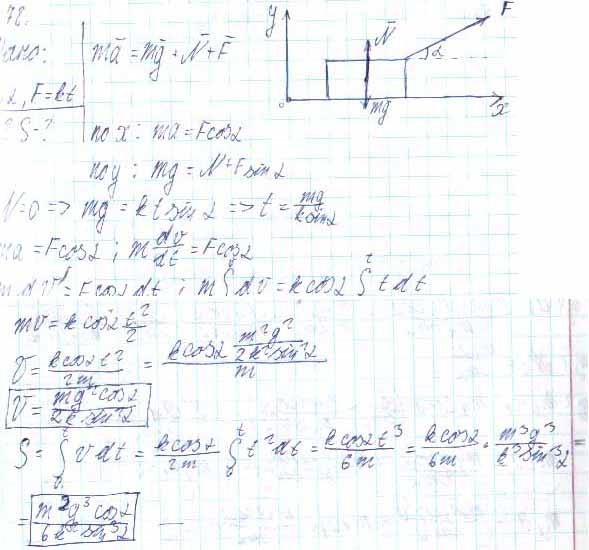 72.
y
F
Дано:
mā = mḡ + N̄ + F̄
N̄
α
α, F=kt
0
mg
x
S-?
по x: ma = Fcosα
по y: mg = N+Fsinα
N=0 => mg = ktsinα => t = mg/ksinα
ma = Fcosα ; m dv/dt = Fcosα
m dv = Fcosα dt ; m∫dv = kcosα ∫ t dt
mv = kcosα t²/2
v = kcosα t²/2m = kcosα m²g²/2k²sin²α / m
v = mg²cosα/2ksin²α
S = ∫ v dt = kcosα/2m ∫ t² dt = kcosα t³/6m = kcosα/6m · m³g³/k³sin³α
= m²g³cosα/6k²sin³α